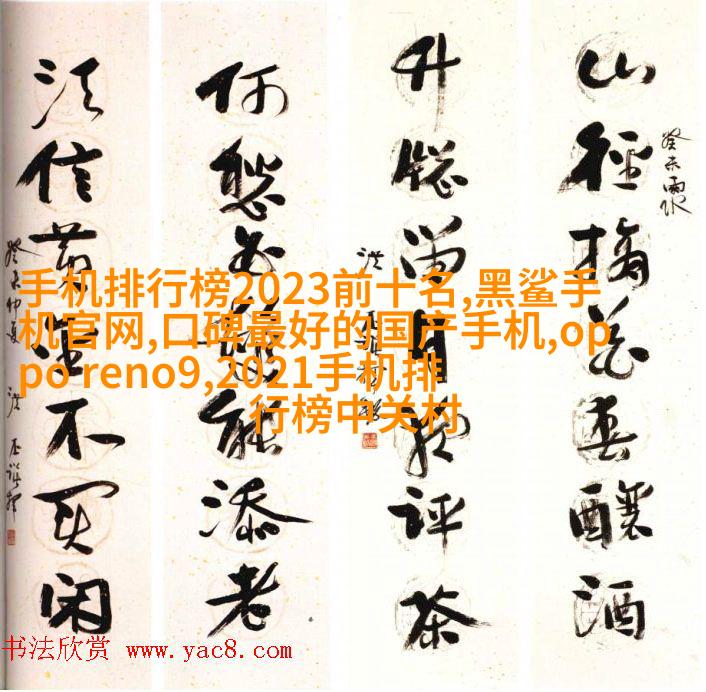 山径摘花春酿酒
癸未雨水
竹窗留月夜评茶
何愁白发能添老
须信黄金不买闲
癸未仲夏
手机排行榜2023前十名,黑鲨手
机官网,口碑最好的国产手机,op
po reno9,2021手机排
行榜中关村
书法欣赏 www.yac8.com